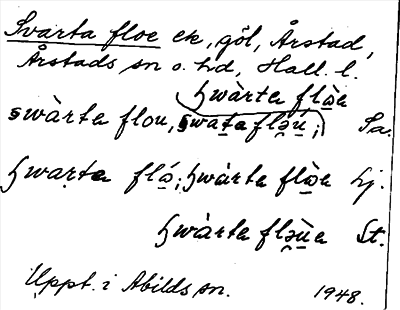 Svarta floe ek, göl, Årstad,
Årstads sn o. hd, Hall. l.
hwàrta flò̱e
swàrta flou, swaṯa flə̯ṵ́; Sa.
hwaṛta fló̱; hwàrta flò̱e Lj.
hwàrta flə̯ṵ̀a St.
Uppt. i Abilds sn. 1948.